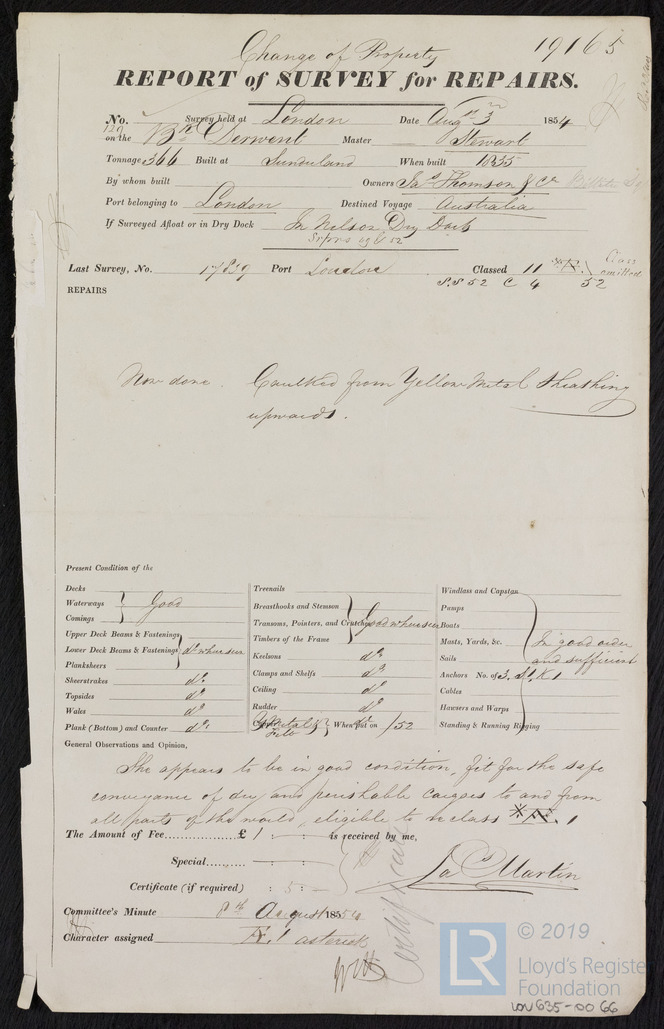 Change of Property
19165
REPORT of SURVEY for REPAIRS.
No. Survey held at London Date Augst 3 1854
on the Bk Derwent Master Stewart
Tonnage 366 Built at Sunderland When built 1835
By whom built Owners Jas Thomson & Co
Port belonging to London Destined Voyage Australia
If Surveyed Afloat or in Dry Dock In Nelson Dry Dock
Last Survey, No. 17839 Port London Classed 11 Class omitted
S.S 52 C 4 52
REPAIRS
Now done. Caulked from Yellow Metal Sheathing
upwards.
Present Condition of the
Decks
Waterways Good
Comings
Upper Deck Beams & Fastenings
Lower Deck Beams & Fastenings do when seen
Planksheers
Sheerstrakes do
Topsides do
Wales do
Plank (Bottom) and Counter do.
Treenails
Breasthooks and Stemson
Transoms, Pointers, and Crutches Good when seen
Timbers of the Frame
Keelsons do
Clamps and Shelfs do
Ceiling do
Rudder do
Y. Metal & Felt When put on /52
Windlass and Capstan
Pumps
Boats
Masts, Yards, &c. In good order
Sails and sufficient
Anchors No. of 3, S1, K1
Cables
Hawsers and Warps
Standing & Running Rigging
General Observations and Opinion,
She appears to be in good condition, fit for the safe
conveyance of dry and perishable Cargoes to and from
all parts of the world, eligible to be class Æ. 1
The Amount of Fee £ 1 : - : - is received by me,
Special - : - : -
Jas Martin
Certificate (if required) : 5 : -
Certificate
Committee's Minute 8th August 1854
Character assigned Æ 1 asterisk
LR © 2019
Lloyd's Register
Foundation
LON635-0066